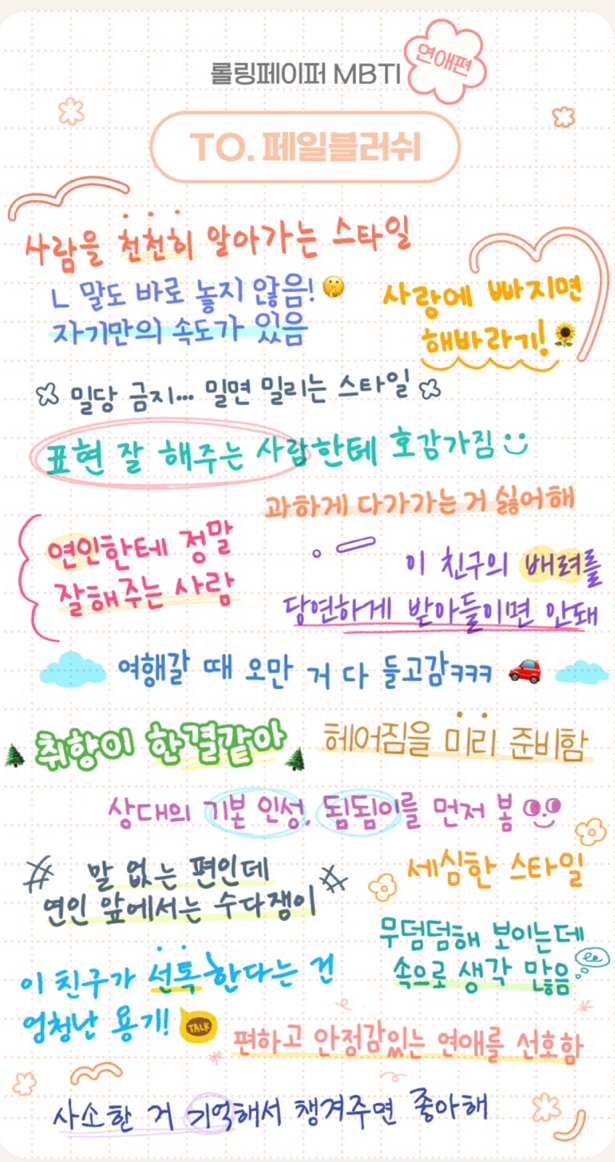 롤링페이퍼 MBTI
연애편
TO. 페일블러쉬
사람을 천천히 알아가는 스타일
ㄴ 말도 바로 놓지 않음! 🤫
자기만의 속도가 있음
사랑에 빠지면
해바라기! 🌻
밀당 금지... 밀면 밀리는 스타일
표현 잘 해주는 사람한테 호감가짐
과하게 다가가는 거 싫어해
연인한테 정말
잘해주는 사람
이 친구의 배려를
당연하게 받아들이면 안돼
여행갈 때 오만 거 다 들고감ㅋㅋㅋ 🚗
🌲 취향이 한결같아 🌲
헤어짐을 미리 준비함
상대의 기본 인성, 됨됨이를 먼저 봄
말 없는 편인데
연인 앞에서는 수다쟁이
세심한 스타일
무덤덤해 보이는데
속으로 생각 많음
이 친구가 선톡한다는 건
엄청난 용기! TALK
편하고 안정감있는 연애를 선호함
사소한 거 기억해서 챙겨주면 좋아해